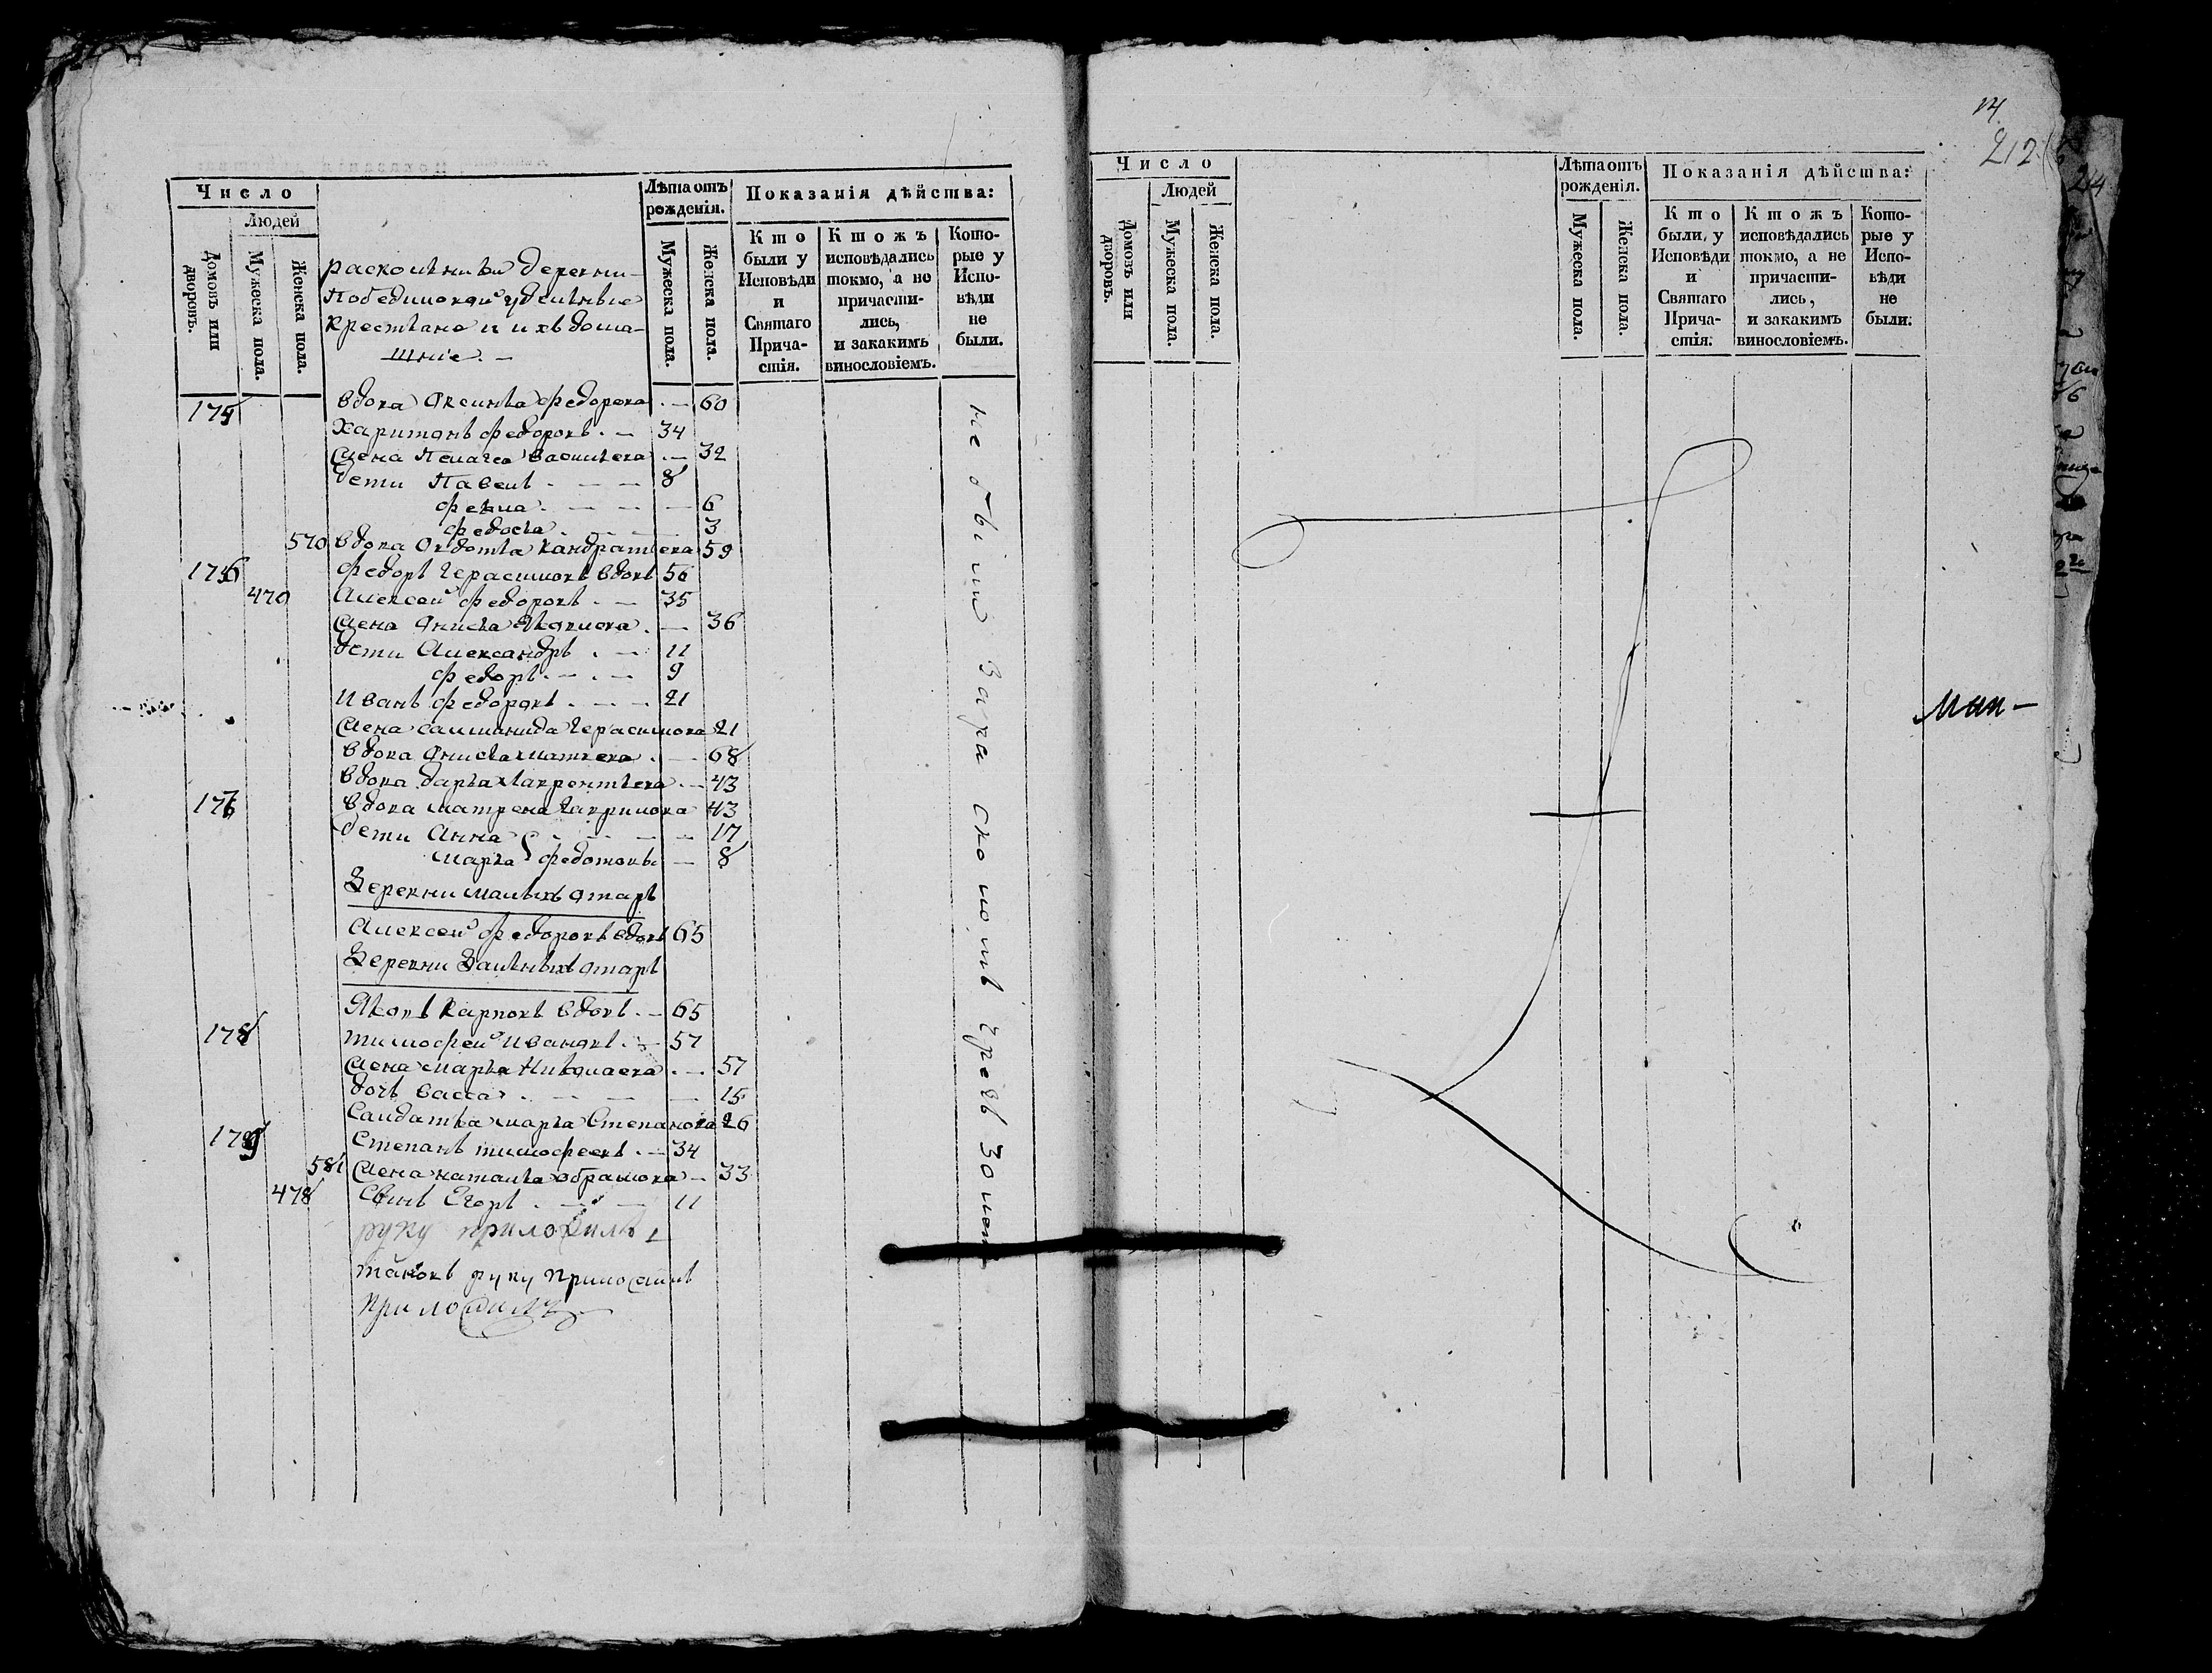 Число
Людей
Домовъ или дворовъ.
Мужеска пола.
Женска пола.
Лѣта отъ рожденія.
Мужеска пола.
Женска пола.
Показанія дѣйства:
Кто были у Исповѣди и Святаго Причастія.
Ктожъ исповѣдались токмо, а не причастились, и закакимъ винословіемъ.
Которые у Исповѣди не были.
раскольники деревни
крестьяне и ихъ домашніе. –
175 вдова Аксинья федорова . — 60
Харитонъ федоровъ . — 34
Жена Пелагея Васильева . — 32
дети Павелъ . — — — 8
фекла . — — — 6
федосья . — — — 3
570 вдова Овдотья Кандратьева 59
176 федоръ Герасимовъ вдовъ 56
470 Алексей федоровъ . — 35
Жена Анисья Яковлева . — 36
дети Александръ . — 11
федоръ . — . — 9
Иванъ федоровъ . — — 21
Жена Герасимова 21
вдова Анисья — 68
вдова дарья Лаврентьева . — 43
177 вдова матрена Гаврилова 43
дети Анна . — — — 17
марья федотовы — 8
Деревни малыхъ отаръ
Алексей федоровъ вдовъ 65
Деревни отаръ
Яковъ Карповъ вдовъ . — 65
178 тимофей Ивановъ . — 57
Жена марья Николаева . — 57
дочь васса . — — — 15
Салдатка марья Степанова 26
179 Степанъ тимофеевъ . — 34
581 Жена наталья абрамова — 33
478 Сынъ Егоръ . — — 11
руку приложилъ
руку приложилъ
приложилъ
не были за раскол
Число
Людей
Домовъ или дворовъ.
Мужеска пола.
Женска пола.
Лѣта отъ рожденія.
Мужеска пола.
Женска пола.
Показанія дѣйства:
Кто были у Исповѣди и Святаго Причастія.
Ктожъ исповѣдались токмо, а не причастились, и закакимъ винословіемъ.
Которые у Исповѣди не были.
212